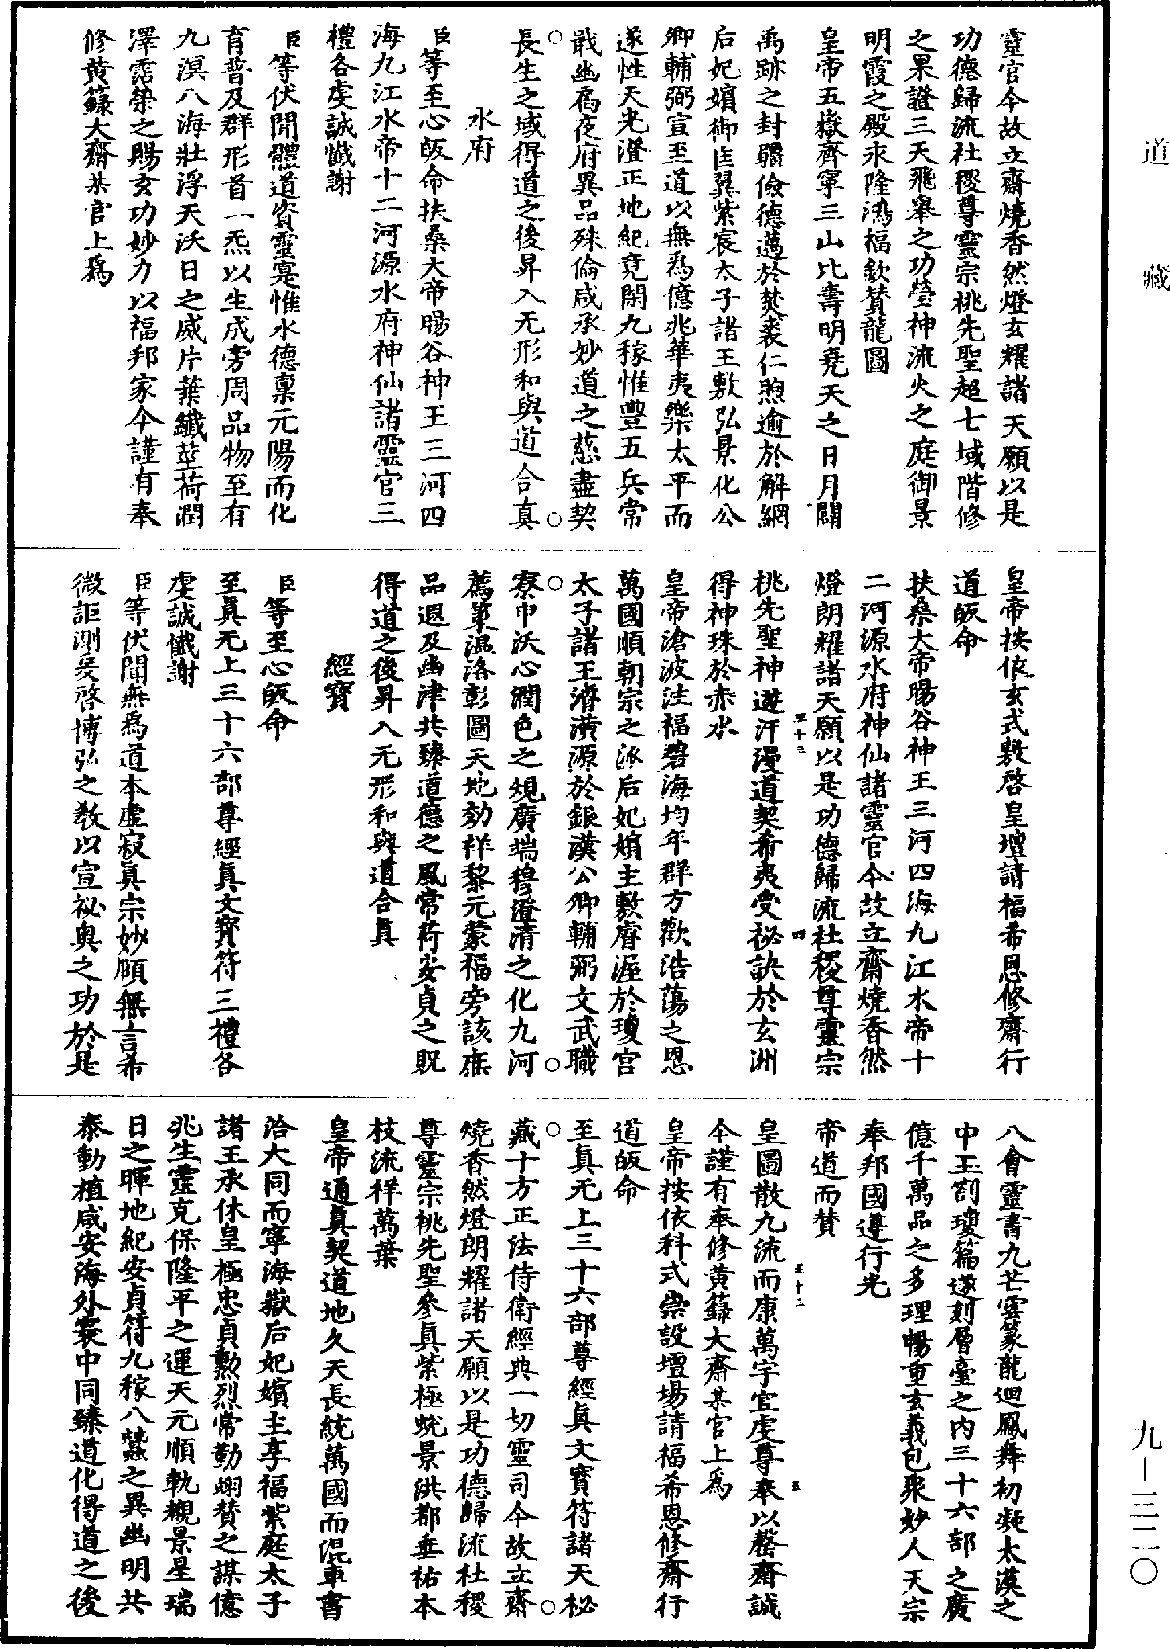 道藏
靈官今故立齋燒香然燈玄耀諸天願以是
功德歸流社稷尊靈宗祧先聖超七域階修
之果證三天飛舉之功瑩神流火之庭御景
明霞之殿永隆鴻福欽賛龍圖
皇帝五嶽齊寧三山比壽明堯天之日月闢
禹跡之封疆儉德邁於焚裘仁煦逾於解網
后妃嬪御匡翼紫宸太子諸王敷弘景化公
卿輔弼宣至道以無爲億兆華夷樂太平而
遂性天光澄正地紀克開九稼惟豐五兵常
戢幽扃夜府異品殊倫咸承妙道之慈盡契
長生之域得道之後昇入无形和與道合真
水府
臣等至心皈命扶桑大帝暘谷神王三河四
海九江水帝十二河源水府神仙諸靈官三
禮各虔誠懺謝
臣等伏聞體道資靈寔惟水德稟元陽而化
育普及群形首一炁以生成旁周品物至有
九溟八海壯浮天沃日之威片葉纖莖荷潤
澤霑榮之賜玄功妙力以福邦家今謹有奉
修黄籙大齋某官上爲
皇帝按依玄式敷啓皇壇請福希恩修齋行
道皈命
扶桑大帝暘谷神王三河四海九江水帝十
二河源水府神仙諸靈官今故立齋燒香然
燈朗耀諸天願以是功德歸流社稷尊靈宗
祧先聖神遊汗漫道契希夷受祕訣於玄洲
得神珠於赤水
皇帝滄波注福碧海均年群方歡浩蕩之恩
萬國順朝宗之泳后妃嬪主敷膺渥於瓊宫
太子諸王濬潢源於銀漢公卿輔弼文武職
寮巾沃心潤色之規廣端穆澄清之化九河
薦策温洛彰圖天地効祥黎元蒙福旁該庶
品遐及幽津共臻道德之風常荷安貞之貺
得道之後昇入无形和與道合真
經寶
臣等至心皈命
至真无上三十六部尊經真文寶符三禮各
虔誠懺謝
臣等伏聞無爲道本虚寂真宗妙頋無言希
微詎測爰啓博弘之教以宣祕奥之功於是
八會靈書九芒寶篆龍迴鳳舞初凝太漠之
中玉劄瓊篇遂刻層臺之内三十六部之廣
億千萬品之多理暢重玄義包衆妙人天宗
奉邦國遵行光
帝道而賛
皇圖散九流而康萬宇宜虔尊奉以罄齋誠
今謹有奉修黄籙大齋某官上爲
皇帝按依科式崇設壇場請福希恩修齋行
道皈命
至真无上三十六部尊經真文寶符諸天祕
藏十方正法侍衛經典一切靈司今故立齋
燒香然燈朗耀諸天願以是功德歸流社稷
尊靈宗祧先聖參真紫極蜕景洪都垂祐本
枝流祥萬葉
皇帝通真契道地久天長統萬國而混車書
洽大同而寧海嶽后妃嬪主享福紫庭太子
諸王承休皇極忠貞勲烈常勤翊賛之謀億
兆生靈克保隆平之運天元順軌觀景星瑞
日之暉地紀安貞符九稼八蠶之異幽明共
泰動植咸安海外寰中同臻道化得道之後
九—三二〇